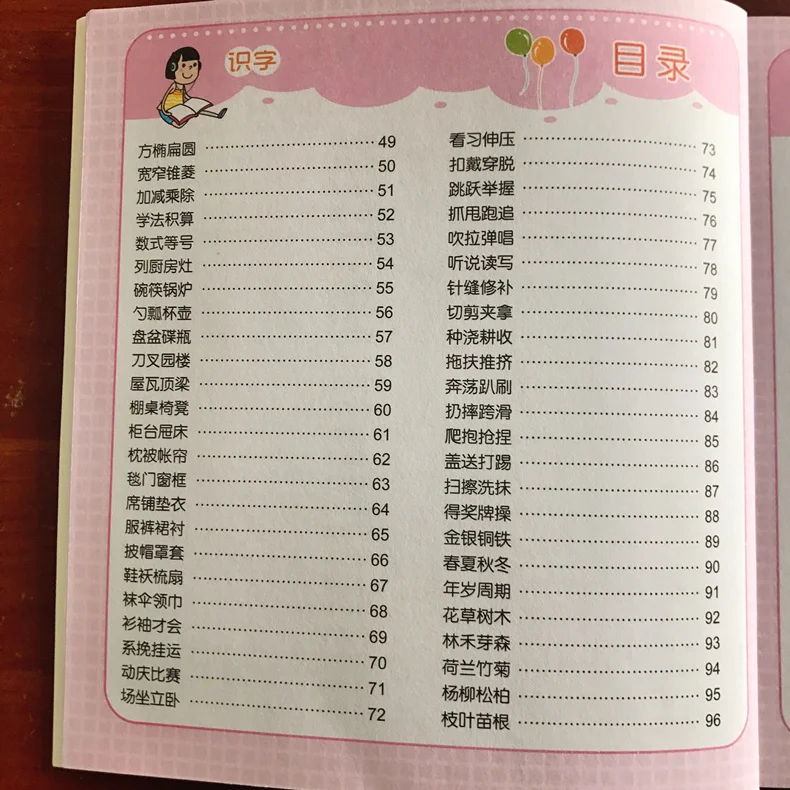 识字
目录
方椭扁圆 49
宽窄锥菱 50
加减乘除 51
学法积算 52
数式等号 53
列厨房灶 54
碗筷锅炉 55
勺瓢杯壶 56
盘盆碟瓶 57
刀叉园楼 58
屋瓦顶梁 59
棚桌椅凳 60
柜台屉床 61
枕被帐帘 62
毯门窗框 63
席铺垫衣 64
服裤裙衬 65
披帽罩套 66
鞋袄梳扇 67
袜伞领巾 68
衫袖才会 69
系挽挂运 70
动庆比赛 71
场坐立卧 72
看习伸压 73
扣戴穿脱 74
跳跃举握 75
抓甩跑追 76
吹拉弹唱 77
听说读写 78
针缝修补 79
切剪夹拿 80
种浇耕收 81
拖扶推挤 82
奔荡趴刷 83
扔摔跨滑 84
爬抱抢捏 85
盖送打踢 86
扫擦洗抹 87
得奖牌操 88
金银铜铁 89
春夏秋冬 90
年岁周期 91
花草树木 92
林禾芽森 93
荷兰竹菊 94
杨柳松柏 95
枝叶苗根 96